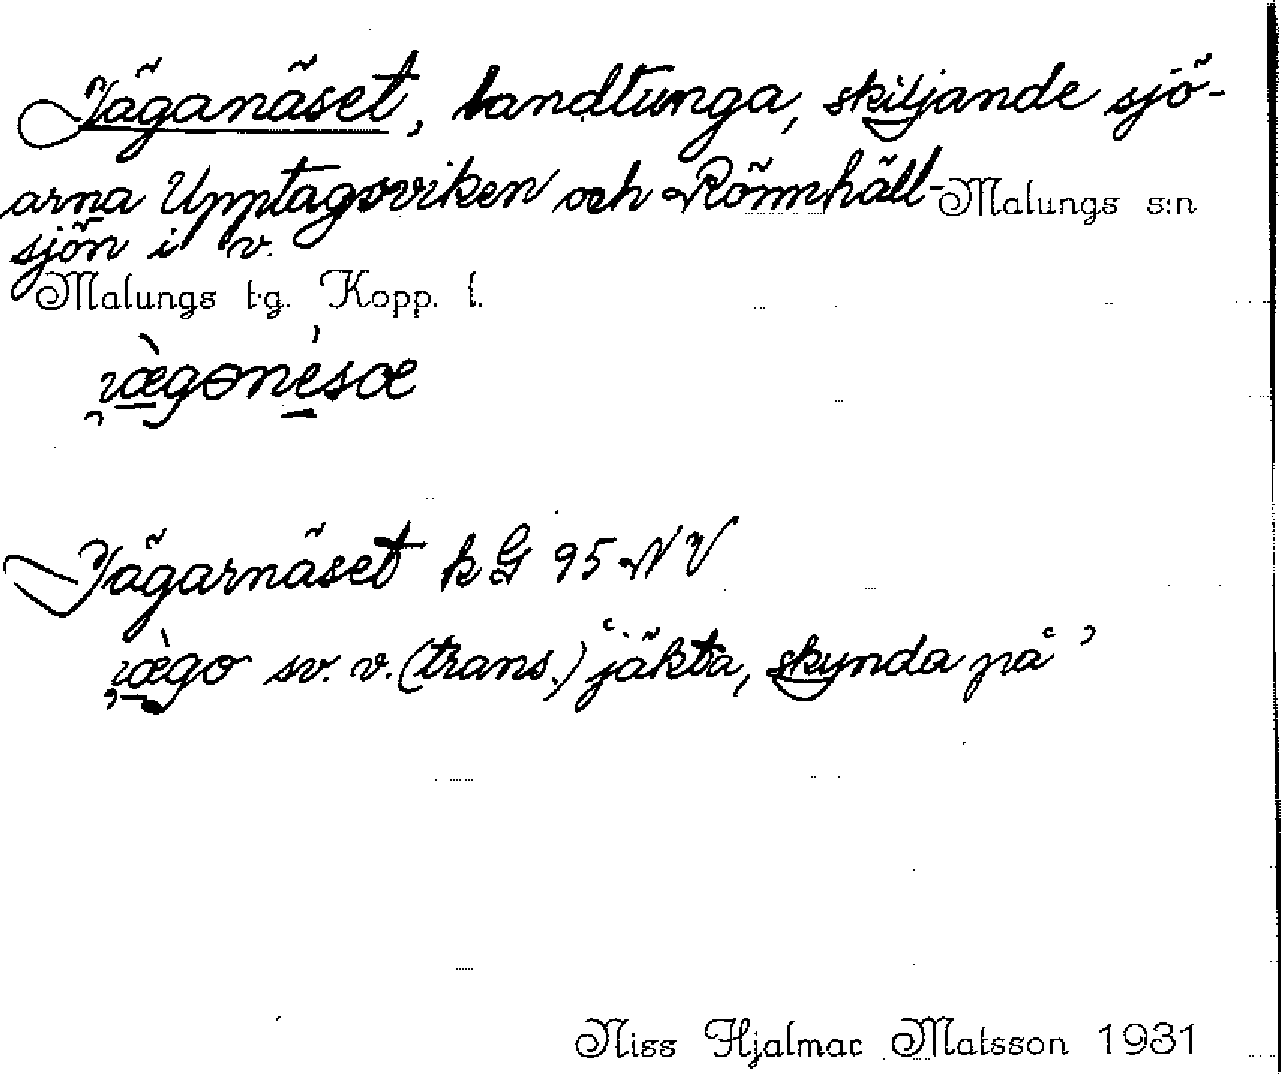 Jäganäset, landtunga, skiljande sjö-
arna Upptagsviken och Römhäll-
sjön i v.
Malungs s:n
Malungs tg. Kopp. l.
Jägarnäset k G 95 NV
sv. v. (trans.) 'jäkta, skynda på'
Niss Hjalmar Matsson 1931